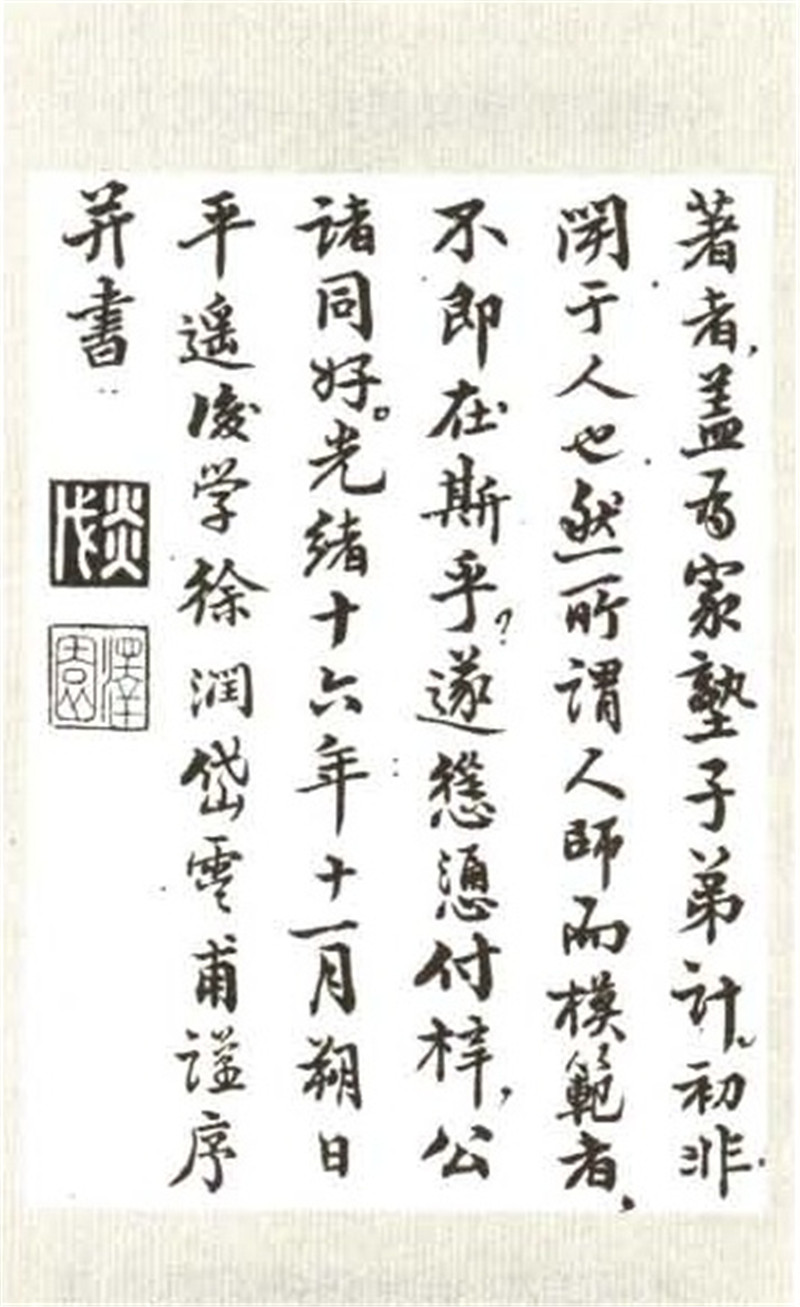 著者，盖为家塾子弟计。初非
于人也然所謂人師而模範者，
不即在斯乎？遂慫慂付梓，公
諸同好。光緒十六年十一月朔日
平遥後学徐潤岱雲甫謹序
并書